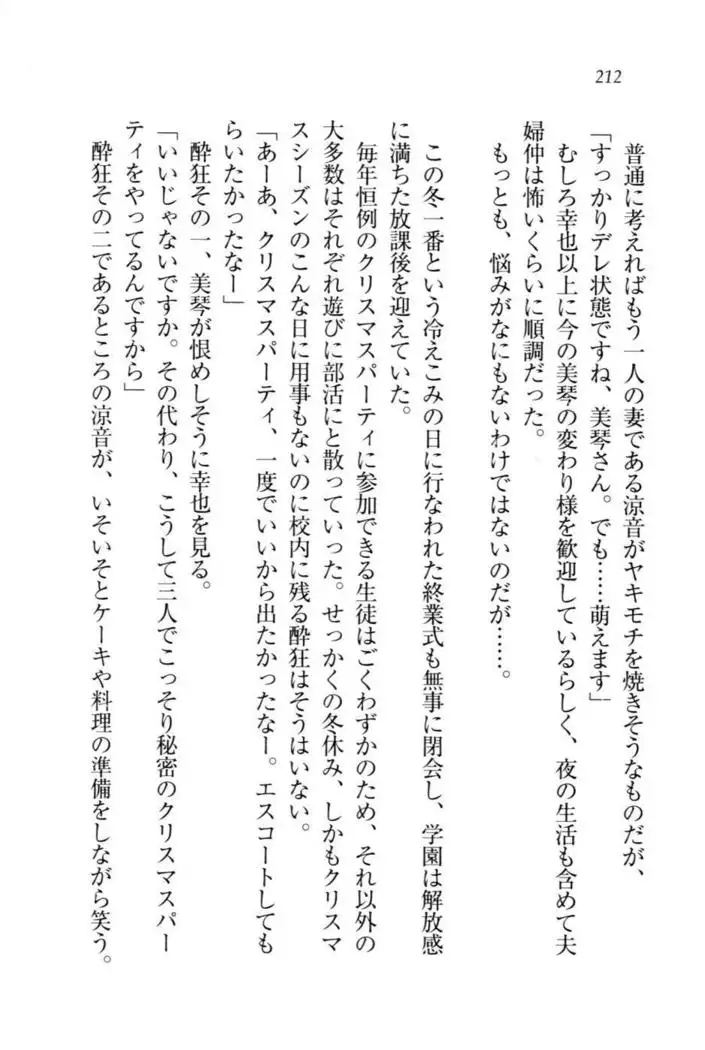 212
普通に考えればもう一人の妻である涼音がヤキモチを焼きそうなものだが、
「すっかりデレ状態ですね、美琴さん。でも……萌えます」
むしろ幸也以上に今の美琴の変わり様を歓迎しているらしく、夜の生活も含めて夫
婦仲は怖いくらいに順調だった。
もっとも、悩みがなにもないわけではないのだが……。
この冬一番という冷えこみの日に行なわれた終業式も無事に閉会し、学園は解放感
に満ちた放課後を迎えていた。
毎年恒例のクリスマスパーティに参加できる生徒はごくわずかのため、それ以外の
大多数はそれぞれ遊びに部活にと散っていった。せっかくの冬休み、しかもクリスマ
スシーズンのこんな日に用事もないのに校内に残る酔狂はそうはいない。
「あーあ、クリスマスパーティ、一度でいいから出たかったなー。エスコートしても
らいたかったなー」
酔狂その一、美琴が恨めしそうに幸也を見る。
「いいじゃないですか。その代わり、こうして三人でこっそり秘密のクリスマスパー
ティをやってるんですから」
酔狂その二であるところの涼音が、いそいそとケーキや料理の準備をしながら笑う。